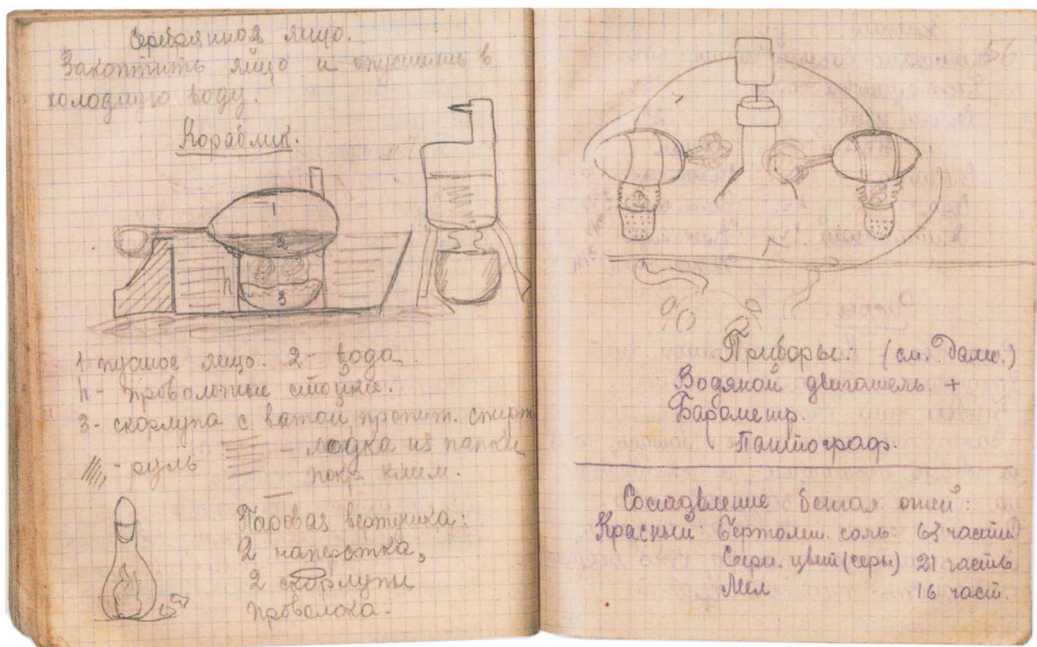 Серебрянное яйцо.
Закоптить яйцо и опустить в
холодную воду.
Кораблик.
1
2
3
h
1 пустое яйцо. 2- вода
h- проволочные стойки.
3- скорлупа с ватой пропит. спирт
- руль
- лодка из папки
покр. клеем.
Паровая вертушка:
2 наперстка,
2 скорлупы
проволока.
Приборы: (см. далее.)
Водяной двигатель. +
Барометр.
Пантограф.
Составление бенгал огней:
Красный: Бертолл. соль: 63 части
Серн. цвет (серы) 21 часть
Мел 16 част.